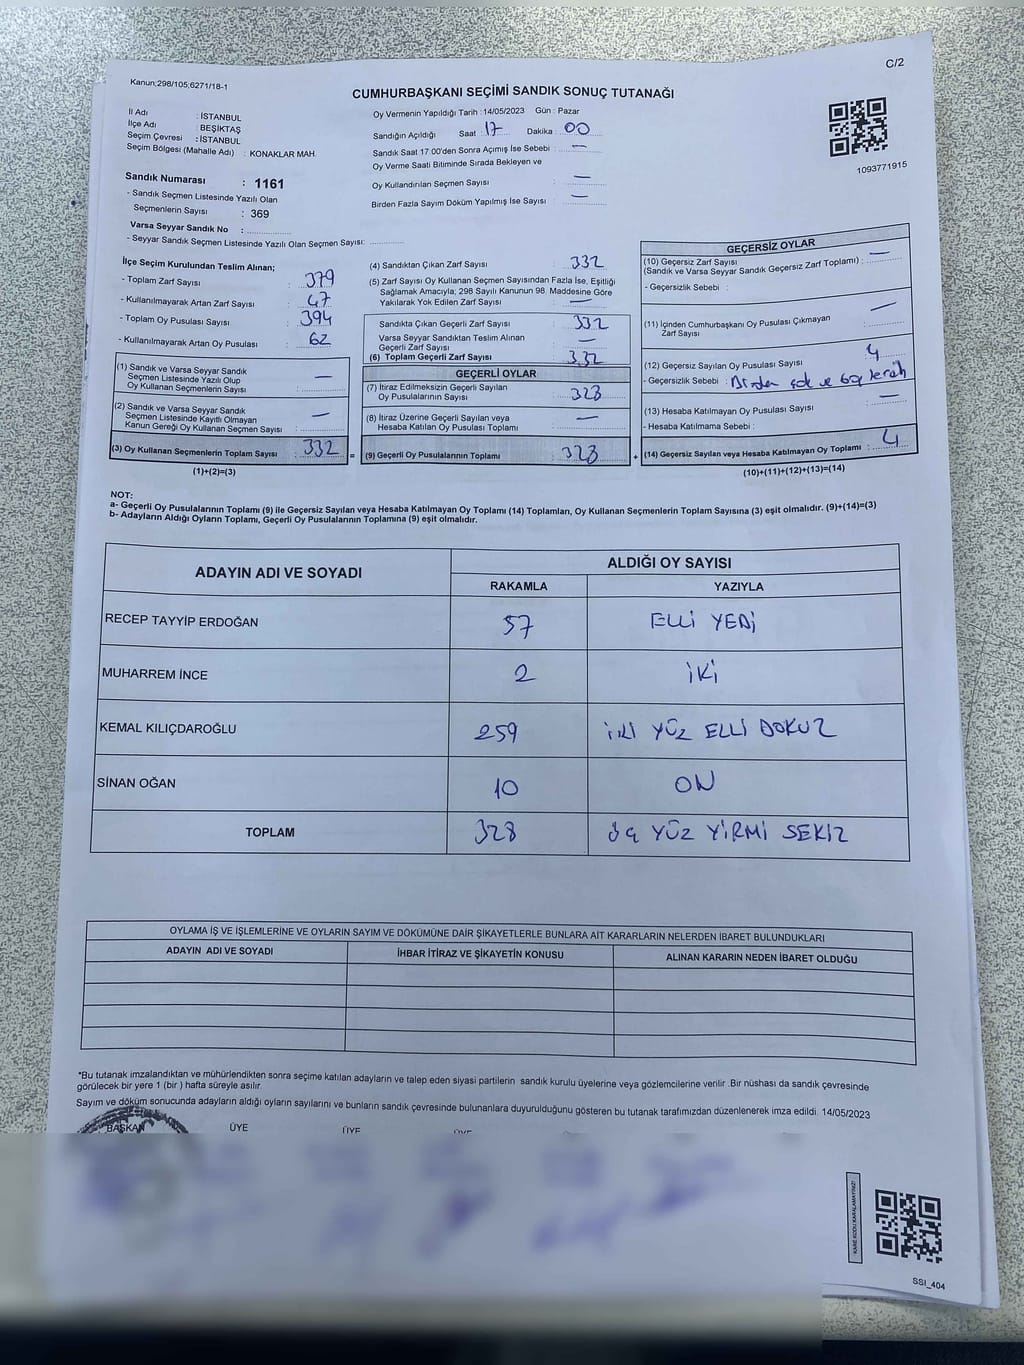 C/2
Kanun;298/105;6271/18-1
CUMHURBAŞKANI SEÇİMİ SANDIK SONUÇ TUTANAĞI
1093771915
İl Adı : İSTANBUL
İlçe Adı : BEŞİKTAŞ
Seçim Çevresi : İSTANBUL
Seçim Bölgesi (Mahalle Adı) : KONAKLAR MAH.
Sandık Numarası : 1161
- Sandık Seçmen Listesinde Yazılı Olan
Seçmenlerin Sayısı : 369
Varsa Seyyar Sandık No :
- Seyyar Sandık Seçmen Listesinde Yazılı Olan Seçmen Sayısı:
Oy Vermenin Yapıldığı Tarih :14/05/2023 Gün : Pazar
Sandığın Açıldığı Saat : 17 Dakika : 00
Sandık Saat 17:00'den Sonra Açımış İse Sebebi : —
Oy Verme Saati Bitiminde Sırada Bekleyen ve
Oy Kullandırılan Seçmen Sayısı : —
Birden Fazla Sayım Döküm Yapılmış İse Sayısı : —
İlçe Seçim Kurulundan Teslim Alınan;
- Toplam Zarf Sayısı : 379
- Kullanılmayarak Artan Zarf Sayısı : 47
- Toplam Oy Pusulası Sayısı : 394
- Kullanılmayarak Artan Oy Pusulası : 62
(1) Sandık ve Varsa Seyyar Sandık
Seçmen Listesinde Yazılı Olup
Oy Kullanan Seçmenlerin Sayısı : —
(2) Sandık ve Varsa Seyyar Sandık
Seçmen Listesinde Kayıtlı Olmayan
Kanun Gereği Oy Kullanan Seçmen Sayısı : —
(3) Oy Kullanan Seçmenlerin Toplam Sayısı : 332
(1)+(2)=(3)
(4) Sandıktan Çıkan Zarf Sayısı : 332
(5) Zarf Sayısı Oy Kullanan Seçmen Sayısından Fazla İse, Eşitliği
Sağlamak Amacıyla; 298 Sayılı Kanunun 98. Maddesine Göre
Yakılarak Yok Edilen Zarf Sayısı : —
Sandıkta Çıkan Geçerli Zarf Sayısı : 332
Varsa Seyyar Sandıktan Teslim Alınan
Geçerli Zarf Sayısı : —
(6) Toplam Geçerli Zarf Sayısı : 332
GEÇERLİ OYLAR
(7) İtiraz Edilmeksizin Geçerli Sayılan
Oy Pusulalarının Sayısı : 328
(8) İtiraz Üzerine Geçerli Sayılan veya
Hesaba Katılan Oy Pusulası Toplamı : —
= (9) Geçerli Oy Pusulalarının Toplamı : 328
GEÇERSİZ OYLAR
(10) Geçersiz Zarf Sayısı
(Sandık ve Varsa Seyyar Sandık Geçersiz Zarf Toplamı) : —
- Geçersizlik Sebebi :
(11) İçinden Cumhurbaşkanı Oy Pusulası Çıkmayan
Zarf Sayısı : —
(12) Geçersiz Sayılan Oy Pusulası Sayısı : 4
- Geçersizlik Sebebi : Birden çok ve boş tercih
(13) Hesaba Katılmayan Oy Pusulası Sayısı : —
- Hesaba Katılmama Sebebi :
+ (14) Geçersiz Sayılan veya Hesaba Katılmayan Oy Toplamı : 4
(10)+(11)+(12)+(13)=(14)
NOT:
a- Geçerli Oy Pusulalarının Toplamı (9) ile Geçersiz Sayılan veya Hesaba Katılmayan Oy Toplamı (14) Toplamları, Oy Kullanan Seçmenlerin Toplam Sayısına (3) eşit olmalıdır. (9)+(14)=(3)
b- Adayların Aldığı Oyların Toplamı, Geçerli Oy Pusulalarının Toplamına (9) eşit olmalıdır.
ADAYIN ADI VE SOYADI ALDIĞI OY SAYISI
RAKAMLA YAZIYLA
RECEP TAYYİP ERDOĞAN 57 ELLİ YEDİ
MUHARREM İNCE 2 İKİ
KEMAL KILIÇDAROĞLU 259 İKİ YÜZ ELLİ DOKUZ
SİNAN OĞAN 10 ON
TOPLAM 328 ÜÇ YÜZ YİRMİ SEKİZ
OYLAMA İŞ VE İŞLEMLERİNE VE OYLARIN SAYIM VE DÖKÜMÜNE DAİR ŞİKAYETLERLE BUNLARA AİT KARARLARIN NELERDEN İBARET BULUNDUKLARI
ADAYIN ADI VE SOYADI İHBAR İTİRAZ VE ŞİKAYETİN KONUSU ALINAN KARARIN NEDEN İBARET OLDUĞU
*Bu tutanak imzalandıktan ve mühürlendikten sonra seçime katılan adayların ve talep eden siyasi partilerin sandık kurulu üyelerine veya gözlemcilerine verilir .Bir nüshası da sandık çevresinde
görülecek bir yere 1 (bir ) hafta süreyle asılır.
Sayım ve döküm sonucunda adayların aldığı oyların sayılarını ve bunların sandık çevresinde bulunanlara duyurulduğunu gösteren bu tutanak tarafımızdan düzenlenerek imza edildi. 14/05/2023
BAŞKAN ÜYE ÜYE ÜYE
KARE KODU KARALAMAYINIZ!
SSI_404